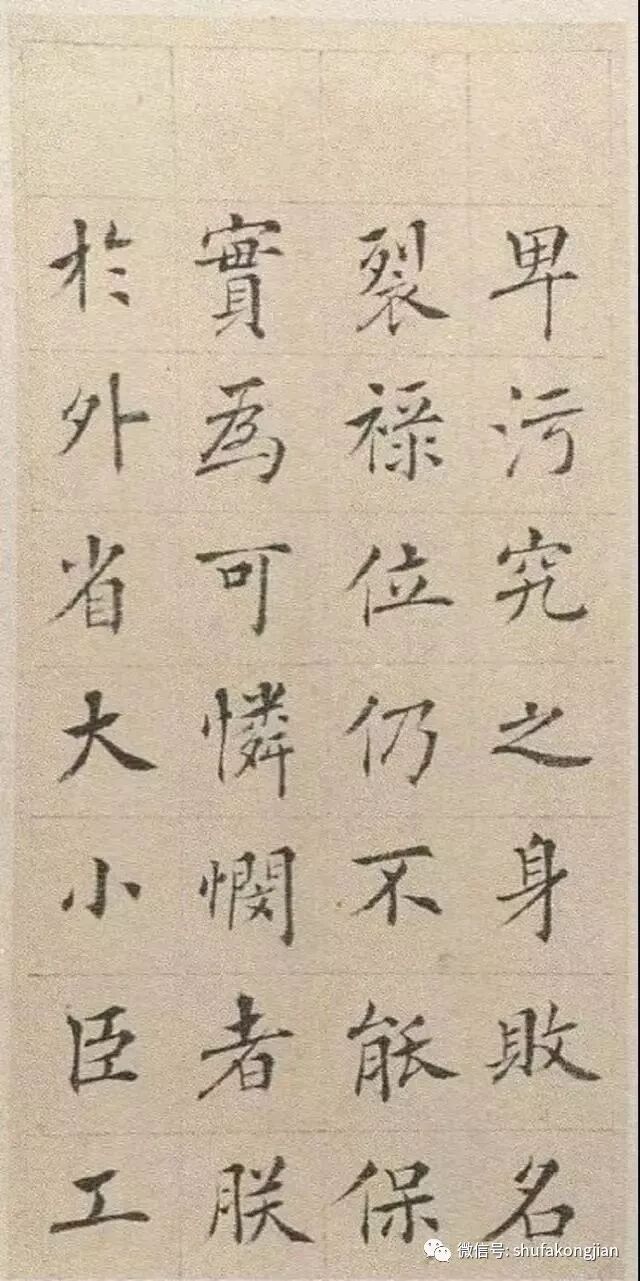 卑污究之身敗名
裂祿位仍不能保
實為可憐憫者朕
於外省大小臣工
微信号: shufakongjian